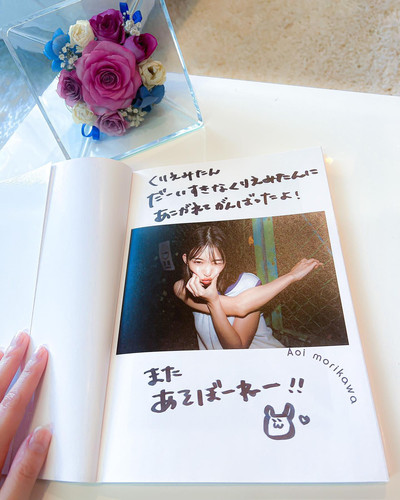 くりえみたん
だーいすきなくりえみたんに
あこがれてがんばったよ！
Aoi morikawa
また
あそぼーねー!!